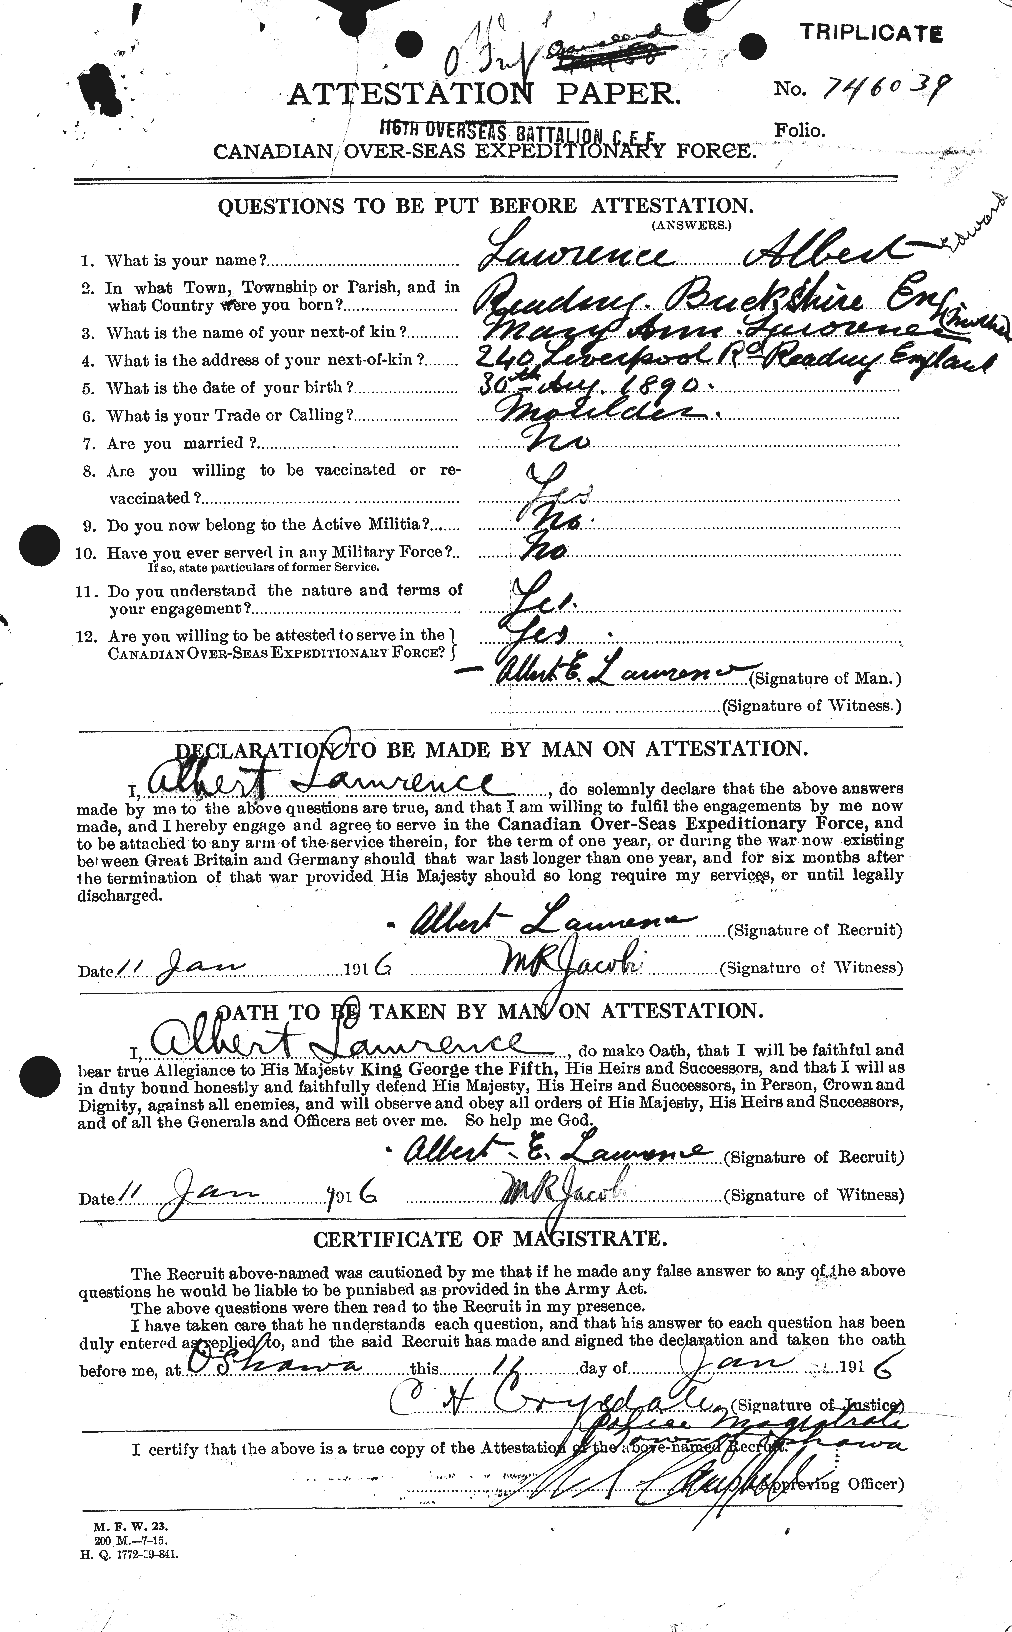 TRIPLICATE
ATTESTATION PAPER.
No. 746039
116TH OVERSEAS BATTALION C.E.F.
Folio.
CANADIAN OVER-SEAS EXPEDITIONARY FORCE.
QUESTIONS TO BE PUT BEFORE ATTESTATION.
(ANSWERS.)
1. What is your name? Lawrence Albert Edward
2. In what Town, Township or Parish, and in
what Country were you born? Reading. Buckshire Eng
3. What is the name of your next-of kin? Mary Ann Lawrence (Mother)
4. What is the address of your next-of-kin? 240 Liverpool Rd Reading England
5. What is the date of your birth? 30th Aug. 1890.
6. What is your Trade or Calling? Moulder.
7. Are you married? No
8. Are you willing to be vaccinated or re-
vaccinated? Yes
9. Do you now belong to the Active Militia? No.
10. Have you ever served in any Military Force? No
If so, state particulars of former Service.
11. Do you understand the nature and terms of
your engagement? Yes.
12. Are you willing to be attested to serve in the
CANADIAN OVER-SEAS EXPEDITIONARY FORCE? Yes
Albert E. Lawrence (Signature of Man.)
(Signature of Witness.)
DECLARATION TO BE MADE BY MAN ON ATTESTATION.
I, Albert Lawrence, do solemnly declare that the above answers
made by me to the above questions are true, and that I am willing to fulfil the engagements by me now
made, and I hereby engage and agree to serve in the Canadian Over-Seas Expeditionary Force, and
to be attached to any arm of the service therein, for the term of one year, or during the war now existing
between Great Britain and Germany should that war last longer than one year, and for six months after
the termination of that war provided His Majesty should so long require my services, or until legally
discharged.
Albert Lawrence (Signature of Recruit)
Date 11 Jan 1916 M R Jacobi (Signature of Witness)
OATH TO BE TAKEN BY MAN ON ATTESTATION.
I, Albert Lawrence, do make Oath, that I will be faithful and
bear true Allegiance to His Majesty King George the Fifth, His Heirs and Successors, and that I will as
in duty bound honestly and faithfully defend His Majesty, His Heirs and Successors, in Person, Crown and
Dignity, against all enemies, and will observe and obey all orders of His Majesty, His Heirs and Successors,
and of all the Generals and Officers set over me. So help me God.
Albert E. Lawrence (Signature of Recruit)
Date 11 Jan 1916 M R Jacobi (Signature of Witness)
CERTIFICATE OF MAGISTRATE.
The Recruit above-named was cautioned by me that if he made any false answer to any of the above
questions he would be liable to be punished as provided in the Army Act.
The above questions were then read to the Recruit in my presence.
I have taken care that he understands each question, and that his answer to each question has been
duly entered as replied to, and the said Recruit has made and signed the declaration and taken the oath
before me, at Oshawa this 11 day of Jan 1916
C H (Signature of Justice)
Police Magistrate
I certify that the above is a true copy of the Attestation of the above-named Recruit.
Town Oshawa
Campbell (Approving Officer)
M. F. W. 23.
200 M.—7-15.
H. Q. 1772-39-841.